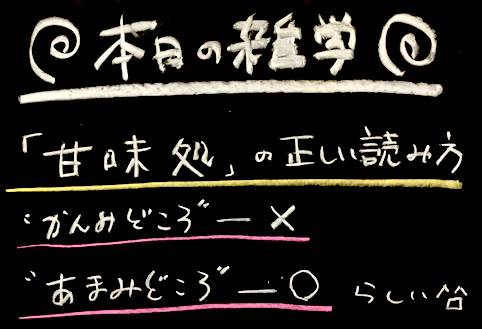 本日の雑学
「甘味処」の正しい読み方
“かんみどころ”ー×
“あまみどころ”ー○ らしい